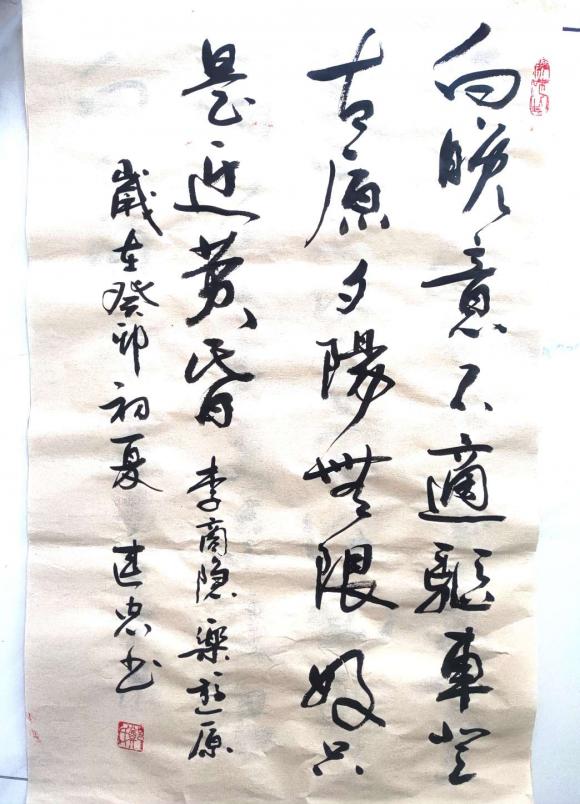 向晚意不適驅車登
古原夕陽無限好只
是近黄昏 李商隐樂遊原
歲在癸卯初夏 建忠书